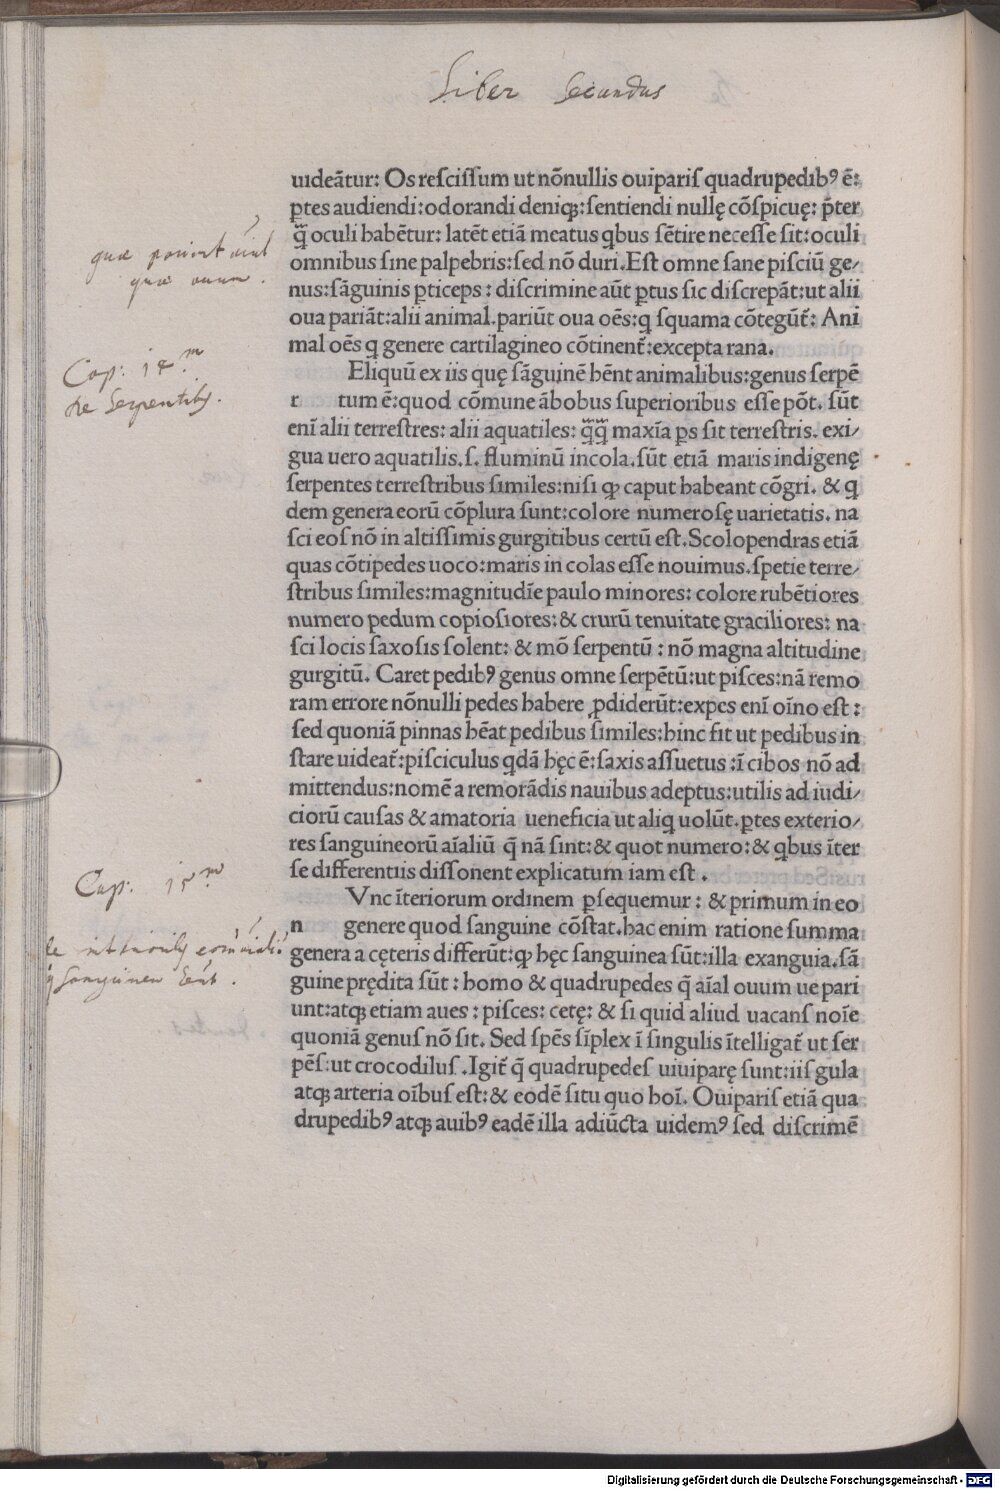 Liber Secundus
uideãtur: Os reſciſſum ut nõnullis ouipariſ quadrupedibꝰ ẽ:
ꝑtes audiendi: odorandi deniqꝫ: ſentiendi nullę cõſpicuę: p̃ter
q̃ oculi habẽtur: latẽt etiã meatus qbus ſẽtire neceſſe ſit: oculi
omnibus ſine palpebris: ſed nõ duri. Eſt omne ſane piſciũ ge⸗
nus: ſãguinis ꝑticeps: diſcrimine aũt ꝑtus ſic diſcrepãt: ut alii
oua pariãt: alii animal. pariũt oua oẽs: q ſquama cõtegũt̃: Ani
mal oẽs q genere cartilagineo cõtinent̃: excepta rana.
Cap: 14.m
de Serpentibꝰ.
Eliquũ ex iis quę ſãguinẽ hẽnt animalibus: genus ſerpẽ
r tum ẽ: quod cõmune ãbobus ſuperioribus eſſe põt. ſũt
enĩ alii terreſtres: alii aquatiles: q̃q̃ maxĩa ꝑs ſit terreſtris. exi⸗
gua uero aquatilis. ſ. fluminũ incola. ſũt etiã maris indigenę
ſerpentes terreſtribus ſimiles: niſi ꝙ caput habeant cõgri. & q
dem genera eorũ cõplura ſunt: colore numeroſę uarietatis. na
ſci eoſ nõ in altiſſimis gurgitibus certũ eſt. Scolopendras etiã
quas cẽtipedes uoco: maris in colas eſſe nouimus. ſpetie terre⸗
ſtribus ſimiles: magnitudĩe paulo minores: colore rubẽtiores
numero pedum copioſiores: & crurũ tenuitate graciliores: na
ſci locis ſaxoſis ſolent: & mõ ſerpentũ: nõ magna altitudine
gurgitũ. Caret pedibꝰ genus omne ſerpẽtũ: ut piſces: nã remo
ram errore nõnulli pedes habere ꝓdiderũt: expes enĩ oĩno eſt:
ſed quoniã pinnas hẽat pedibus ſimiles: hinc fit ut pedibus in
ſtare uideat̃: piſciculus qdã hęc ẽ: ſaxis aſſuetus: ĩ cibos nõ ad
mittendus: nomẽ a remorãdis nauibus adeptus: utilis ad iudi⸗
ciorũ cauſas & amatoria ueneficia ut aliq uolũt. ꝑtes exterio⸗
res ſanguineorũ aĩaliũ q̃ nã ſint: & quot numero: & qbus ĩter
ſe differentiis diſſonent explicatum iam eſt.
Cap: 15.m
Vnc ĩteriorum ordinem ꝑſequemur: & primum in eo
n genere quod ſanguine cõſtat. hac enim ratione ſumma
genera a cęteris differũt: ꝙ hęc ſanguinea ſũt: illa exanguia. ſã
guine prędita ſũt: homo & quadrupedes q̃ aĩal ouum ue pari
unt: atqꝫ etiam aues: piſces: cetę: & ſi quid aliud uacanſ noĩe
quoniã genuſ nõ ſit. Sed ſpẽs ſĩplex ĩ ſingulis ĩtelligat̃ ut ſer
pẽſ: ut crocodiluſ. Igit̃ q̃ quadrupedeſ uiuiparę ſunt: iiſ gula
atqꝫ arteria oĩbuſ eſt: & eodẽ ſitu quo hoĩ. Ouipariſ etiã qua
drupedibꝰ atqꝫ auibꝰ eadẽ illa adiũcta uidemꝰ ſed diſcrimẽ
Digitalisierung gefördert durch die Deutsche Forschungsgemeinschaft - DFG